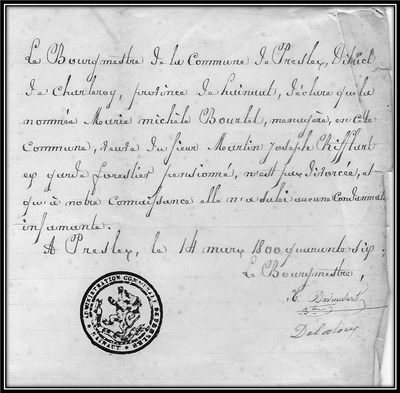 Le Bourgmestre de la Commune de Presles, District
de Charleroy, province de hainaut, déclare que la
nommée Marie michèle Bourlet, menagère, en cette
Commune, veuve du sieur Martin Joseph Rifflart
ex garde forestier pensionné, n'est pas divorcée, et
qu'à notre connaissance elle n'a subi aucune Condamnation
infamante.
A Presles, le 14 mars 1800 quarante six
Le Bourgmestre,
ADMINISTRATION COMMUNALE DE PRESLES
HAINAUT